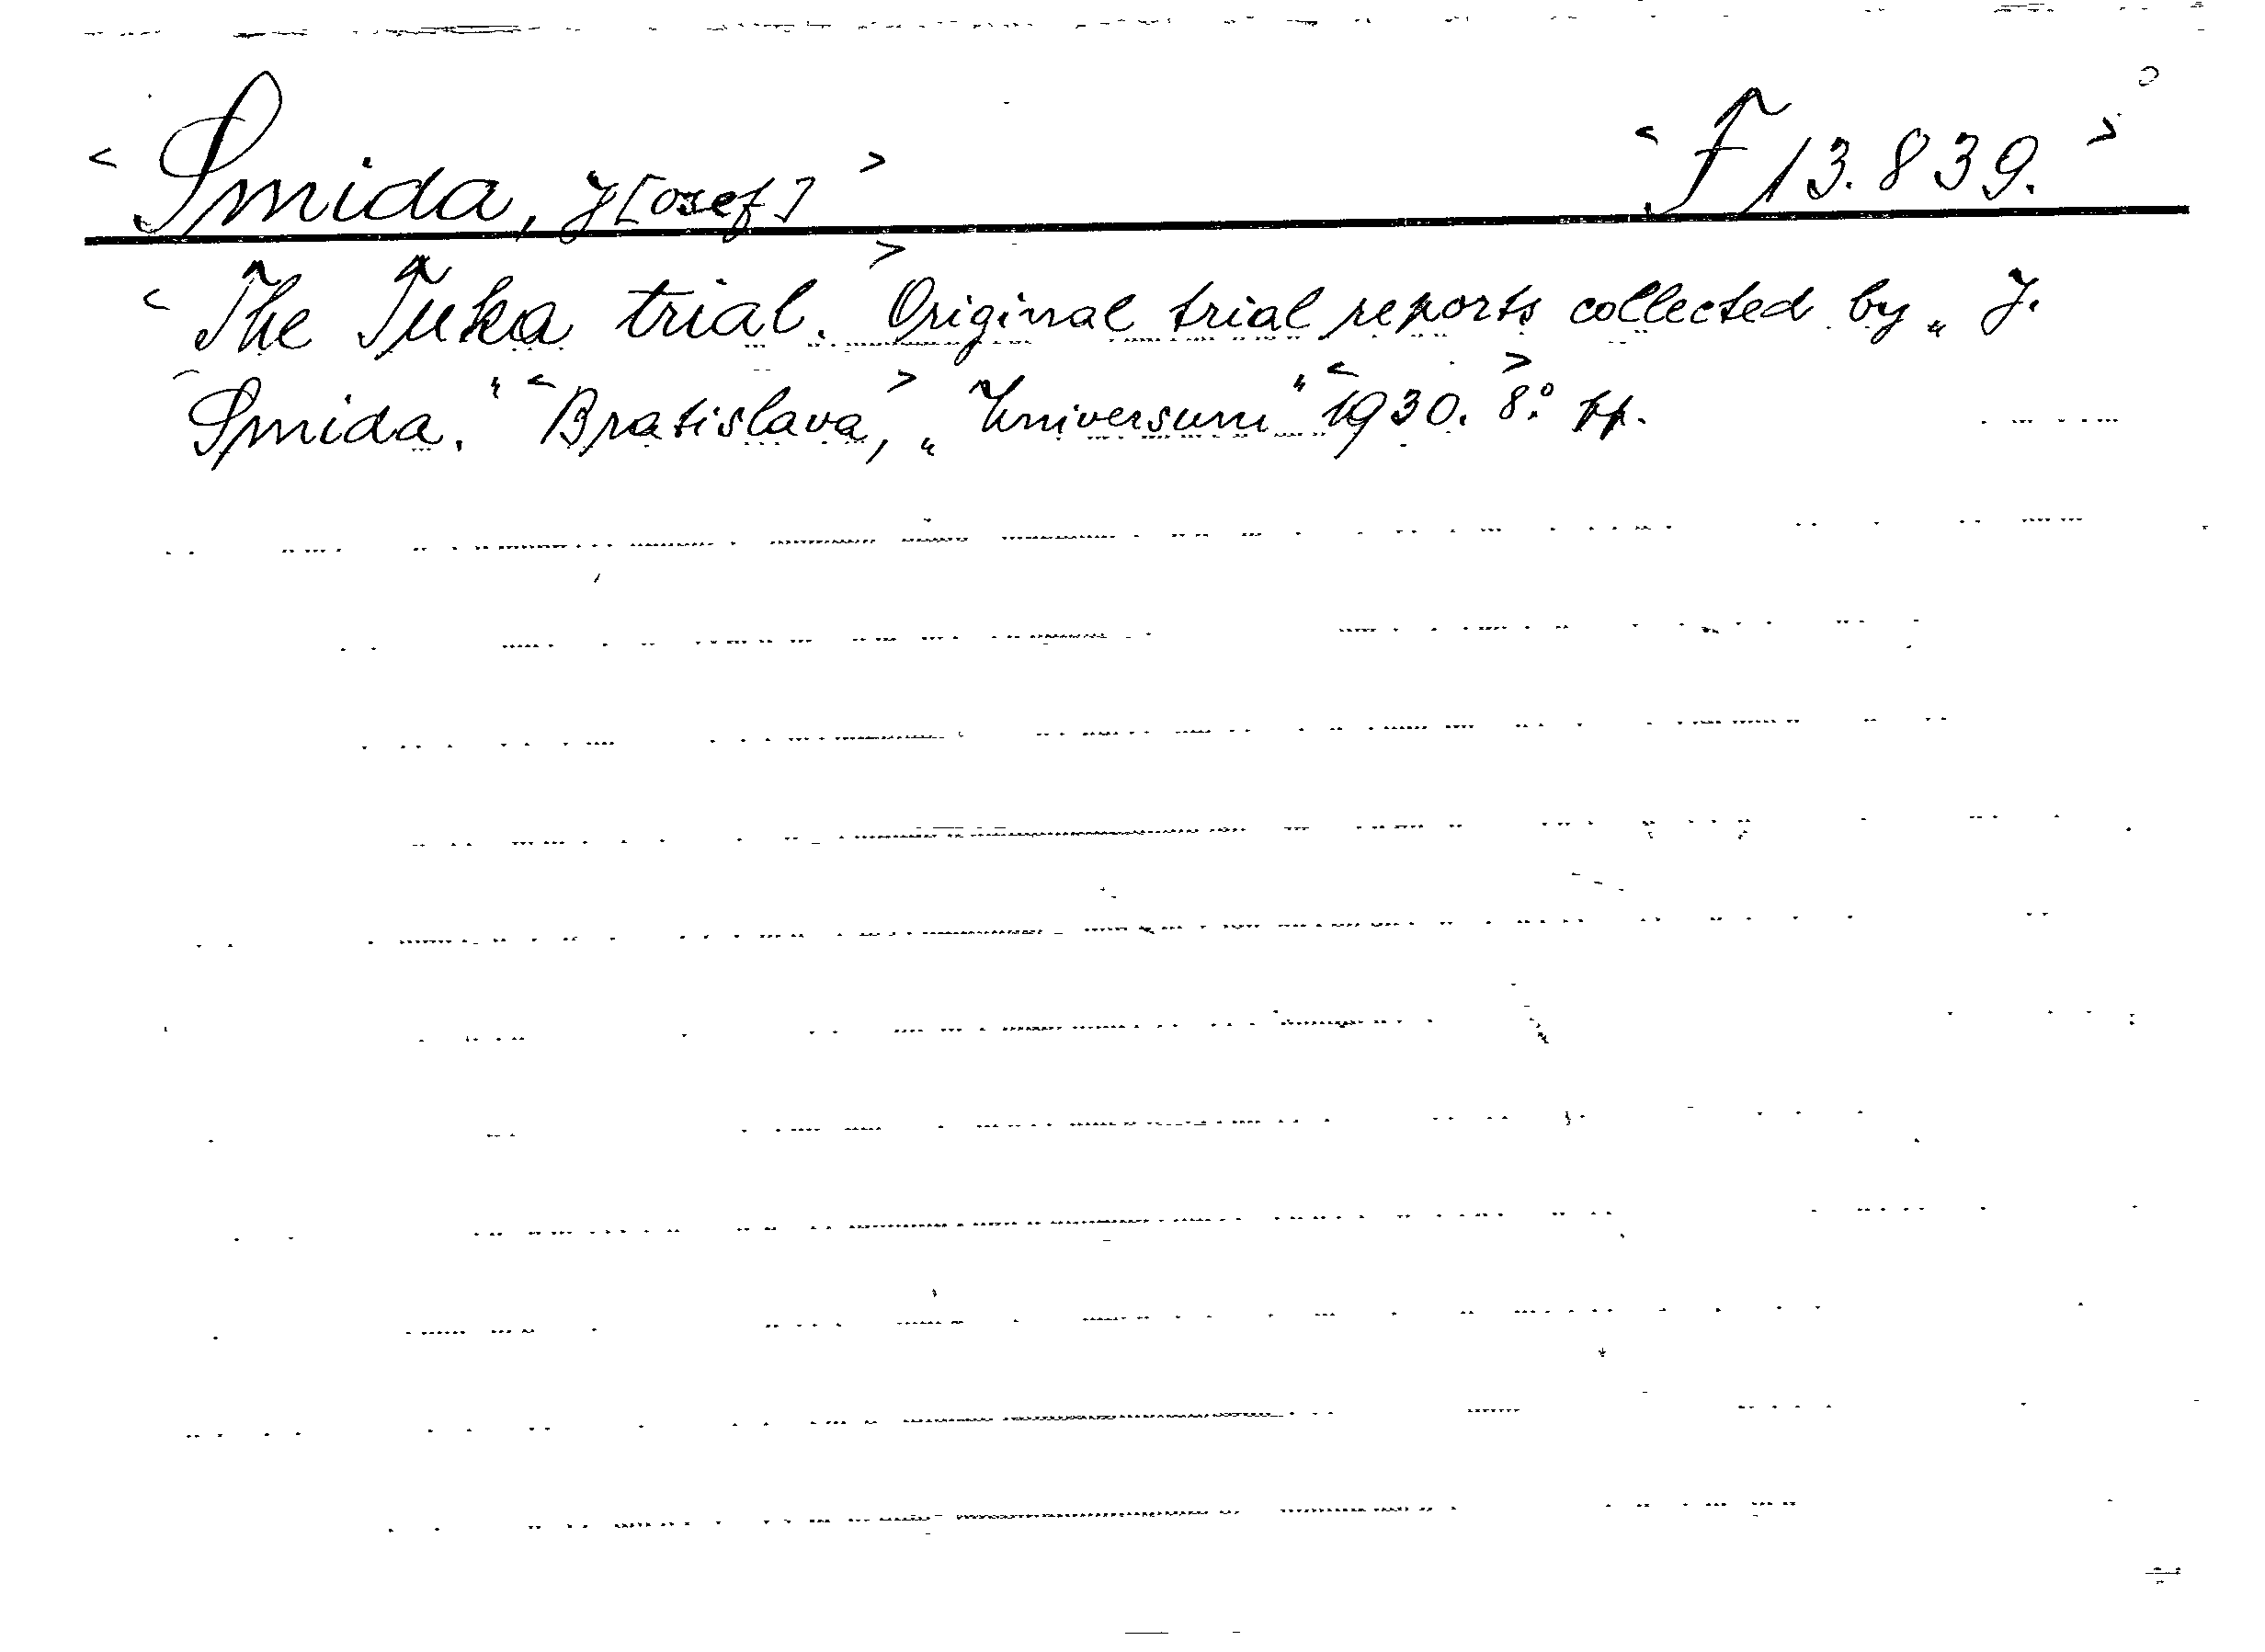 < Smida, J[osef] > < F 13.839. >
< The Tuka trial. > Original trial reports collected by „ J.
Smida. " < Bratislava, > „ Universum " < 1930. > 8° pp.